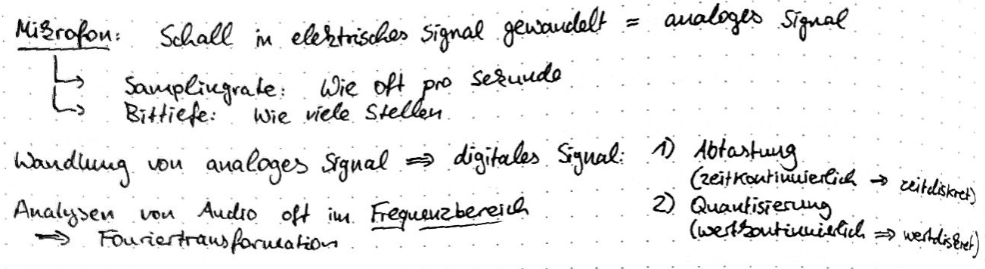 Mikrofon: Schall in elektrisches Signal gewandelt = analoges Signal
↳ Samplingrate: Wie oft pro Sekunde
↳ Bittiefe: Wie viele Stellen
Wandlung von analoges Signal ⇒ digitales Signal: 1) Abtastung
(zeitkontinuierlich → zeitdiskret)
Analysen von Audio oft im Frequenzbereich
2) Quantisierung
(wertkontinuierlich ⇒ wertdiskret)
⇒ Fouriertransformation